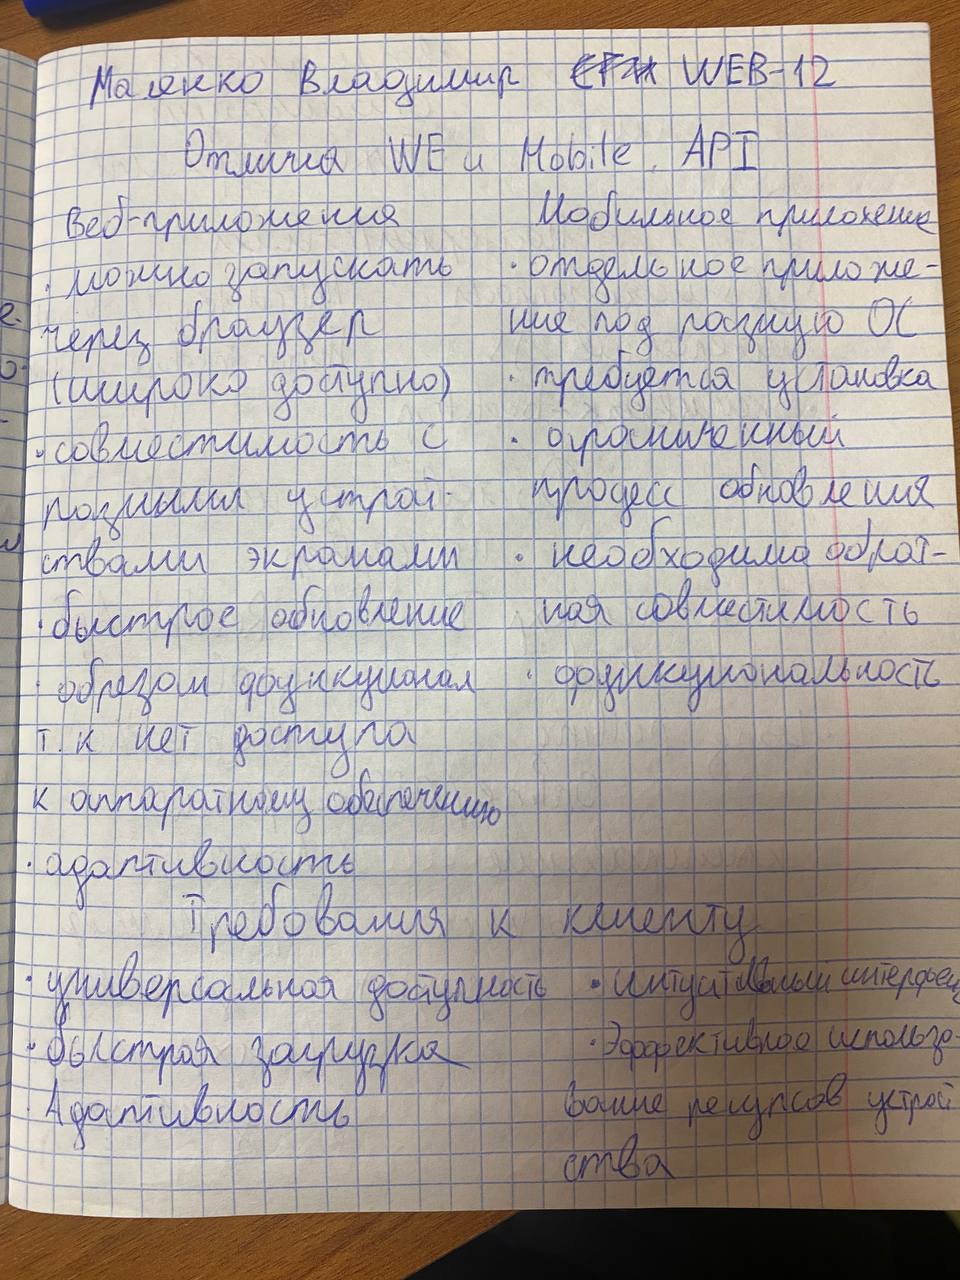 Маленко Владимир WEB-12
Отличия WE и Mobile. API
Веб-приложения
· можно запускать
через браузер
(широко доступно)
· совместимость с
разными устрой-
ствами экранами
· быстрое обновление
· обрезан функционал
т.к нет доступа
к аппаратному обеспечению
· адаптивность
Мобильное приложение
· отдельное приложе-
ние под разную ОС
· требуется установка
· ограниченный
процесс обновления
· необходима обрат-
ная совместимость
· функциональность
Требования к клиенту
· универсальная доступность
· быстрая загрузка
· Адаптивность
· интуитивный интерфейс
· Эффективное использо-
вание ресурсов устрой
ства